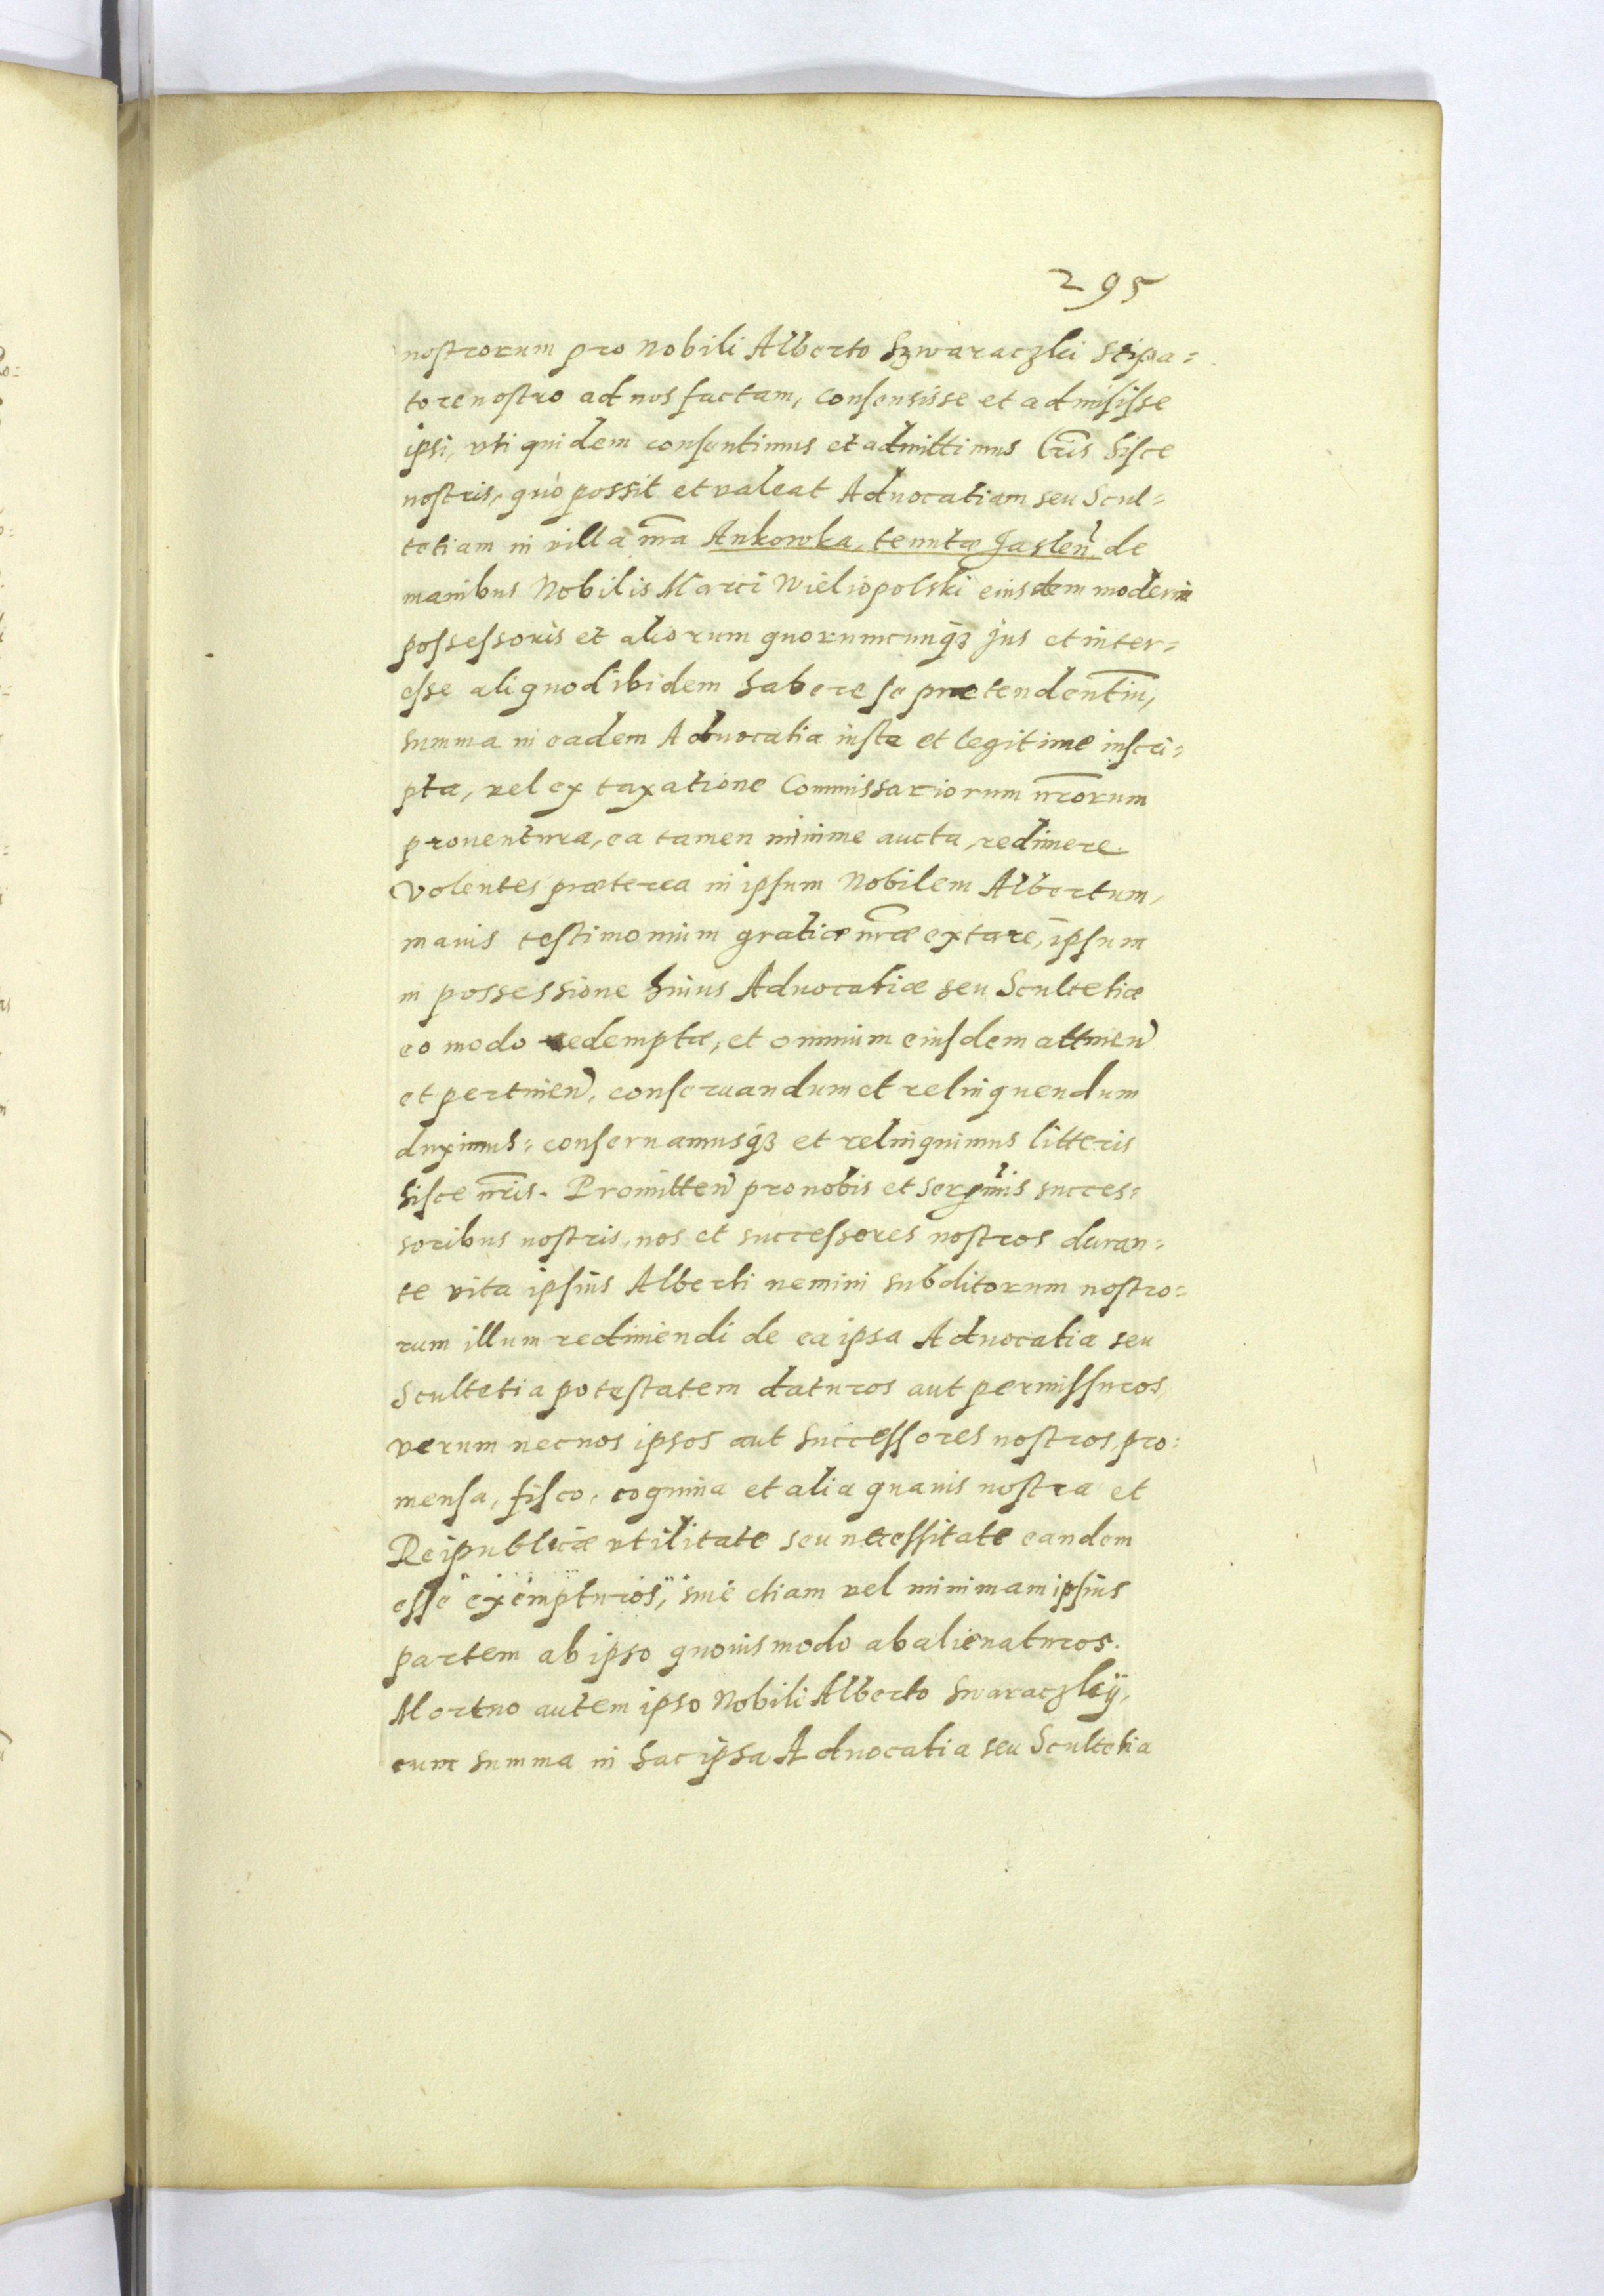 295
nostrorum pro Nobili Alberto Szwaraczki stipa=
tore nostro ad nos factam, consensisse et admisisse
ipsi, vti quidem consentimus et admittimus lr̃is hisce
nostris, quò possit et valeat Aduocatiam seu Scul=
tetiam in villa nr̃a Ankowka, tenutæ Jaslen̄ de
manibus Nobilis Marci Wieliopolski eiusdem moderni
possessoris et aliorum quorumcunq3 jus et inter=
esse aliquod ibidem habere se prætendentiũ,
summa in eadem Aduocatia iuste et legitime inscri=
pta, vel ex taxatione Commissariorum nr̃orum
prouentura, ea tamen minime aucta, redimere.
Volentes præterea in ipsum Nobilem Albertum,
maius testimonium gratiæ nr̃æ extare, ipsum
in possessione huius Aduocatiæ seu Scultetiæ
eo modo redemptæ, et omnium eiusdem attinen̄
et pertinen̄, conseruandum et relinquendum
duximus: conseruamusq3 et relinquimus litteris
hisce nr̃is. Promitten̄ pro nobis et Serẽmis succes=
soribus nostris, nos et successores nostros duran=
te vita ipsius Alberti nemini subditorum nostro=
rum illum redimendi de ea ipsa Aduocatia seu
Scultetia potestatem daturos aut permissuros,
verum nec nos ipsos aut successores nostros, pro
mensa, fisco, coquina et alia quauis nostra et
Reipublicæ vtilitate seu necessitate eandem
esse exempturos, siue etiam vel minimam ipsius
partem ab ipso quouismodo abalienaturos.
Mortuo autem ipso Nobili Alberto Swaraczkij,
cum summa in hac ipsa Aduocatia seu Scultetia